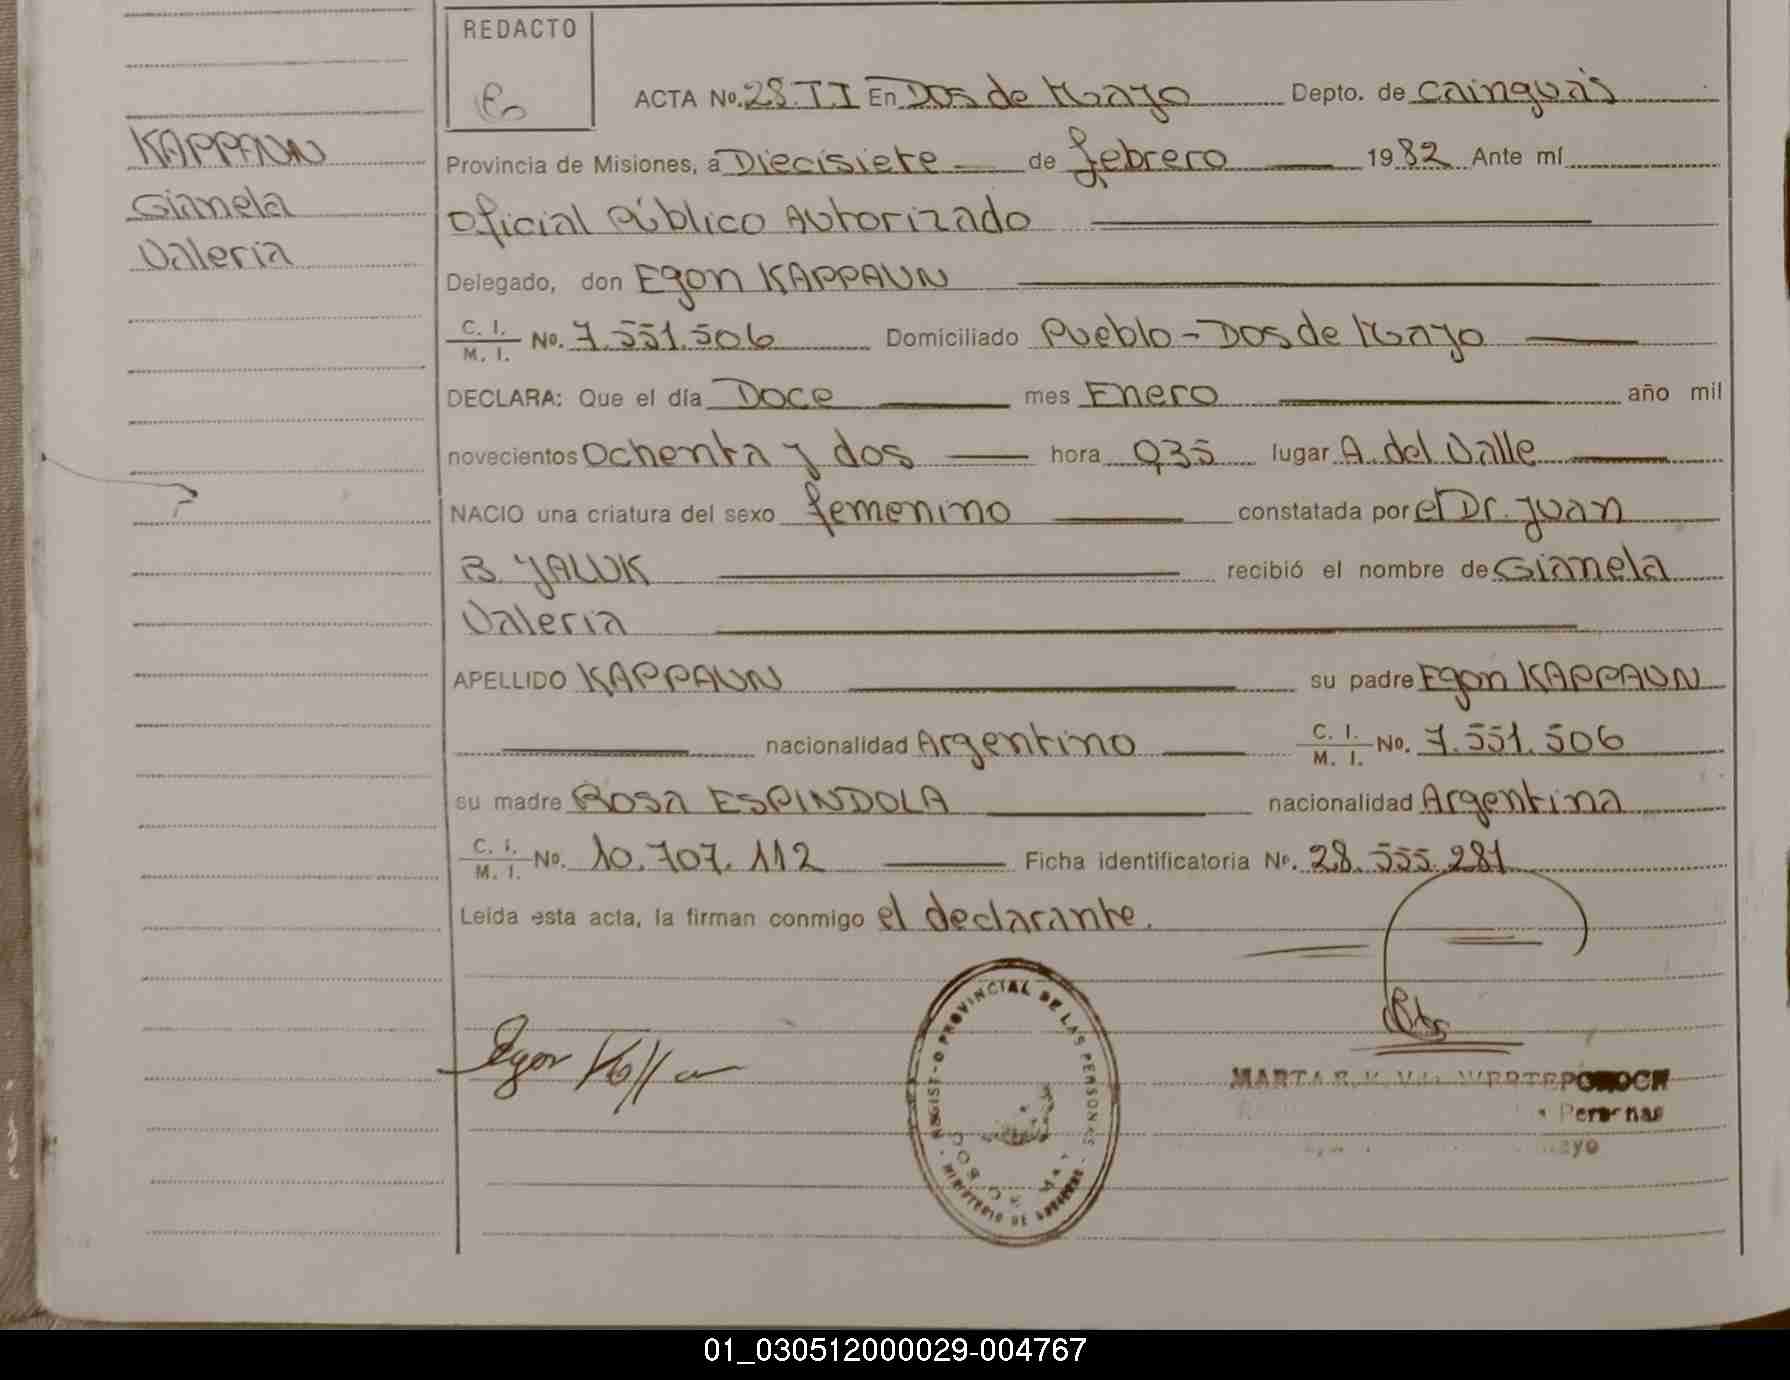 REDACTO
ACTA No. 28. T I En Dos de Mayo Depto. de Cainguás
KAPPAUN
Gianela
Valeria
Provincia de Misiones, a Diecisiete de febrero 1982 Ante mí
Oficial Público Autorizado
Delegado, don Egon KAPPAUN
C. I.
M. I. No. 7.551.506 Domiciliado Pueblo - Dos de Mayo
DECLARA: Que el día Doce mes Enero año mil
novecientos Ochenta y dos hora 0,35 lugar A. del Valle
NACIO una criatura del sexo femenino constatada por el Dr. Juan
B. YALUK recibió el nombre de Gianela
Valeria
APELLIDO KAPPAUN su padre Egon KAPPAUN
nacionalidad Argentino C. I. M. I. No. 7.551.506
su madre Rosa ESPINDOLA nacionalidad Argentina
C. I. M. I. No. 10.707.112 Ficha identificatoria Nº. 28.555.281
Leída esta acta, la firman conmigo el declarante.
Egon
REGISTRO PROVINCIAL DE LAS PERSONAS
MARTA
Personas
01_030512000029-004767